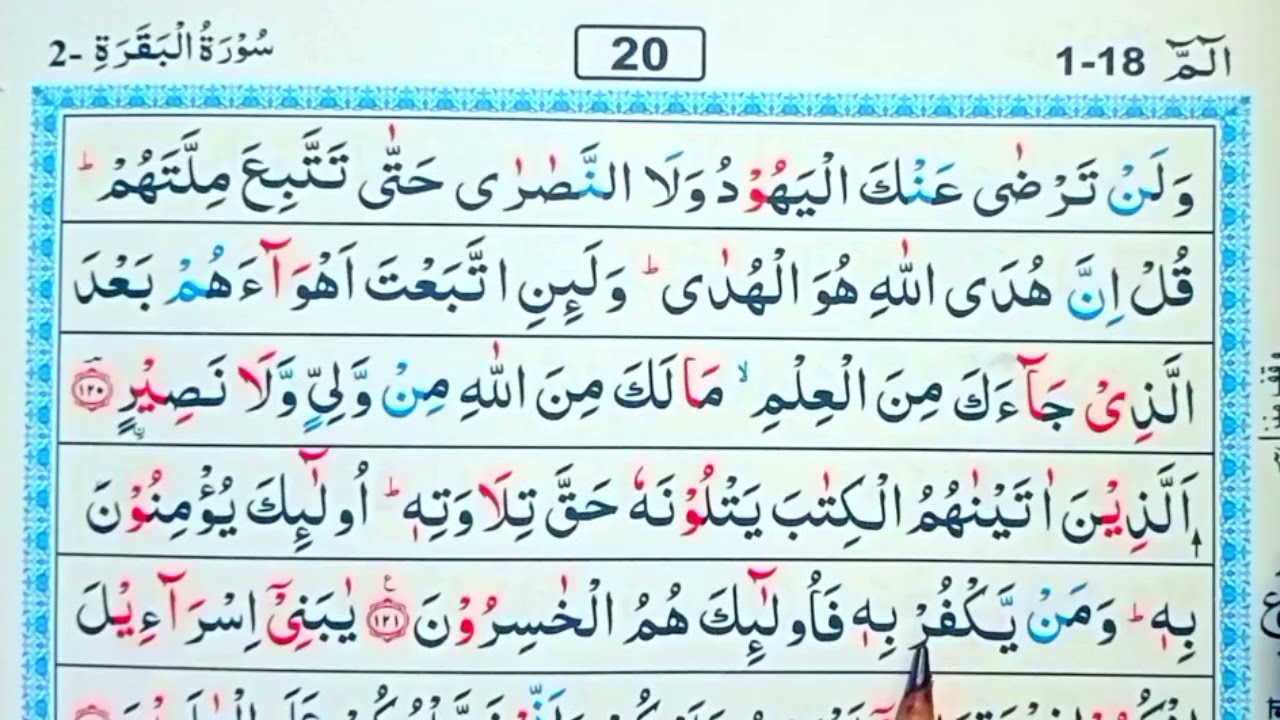 الٓمّٓ 1-18
20
سُوْرَةُ الْبَقَرَةِ -2
وَلَنْ تَرْضٰى عَنْكَ الْيَهُوْدُ وَلَا النَّصٰرٰى حَتّٰى تَتَّبِعَ مِلَّتَهُمْ ؕ
قُلْ اِنَّ هُدَى اللّٰهِ هُوَ الْهُدٰى ؕ وَلَئِنِ اتَّبَعْتَ اَهْوَآءَهُمْ بَعْدَ
الَّذِىْ جَآءَكَ مِنَ الْعِلْمِ ۙ مَا لَكَ مِنَ اللّٰهِ مِنْ وَّلِىٍّ وَّلَا نَصِيْرٍ ۝۱۲۰
اَلَّذِيْنَ اٰتَيْنٰهُمُ الْكِتٰبَ يَتْلُوْنَهٗ حَقَّ تِلَاوَتِهٖ ؕ اُولٰٓئِكَ يُؤْمِنُوْنَ
بِهٖ ؕ وَمَنْ يَّكْفُرْ بِهٖ فَاُولٰٓئِكَ هُمُ الْخٰسِرُوْنَ ۝۱۲۱ ع يٰبَنِىْٓ اِسْرَآءِيْلَ